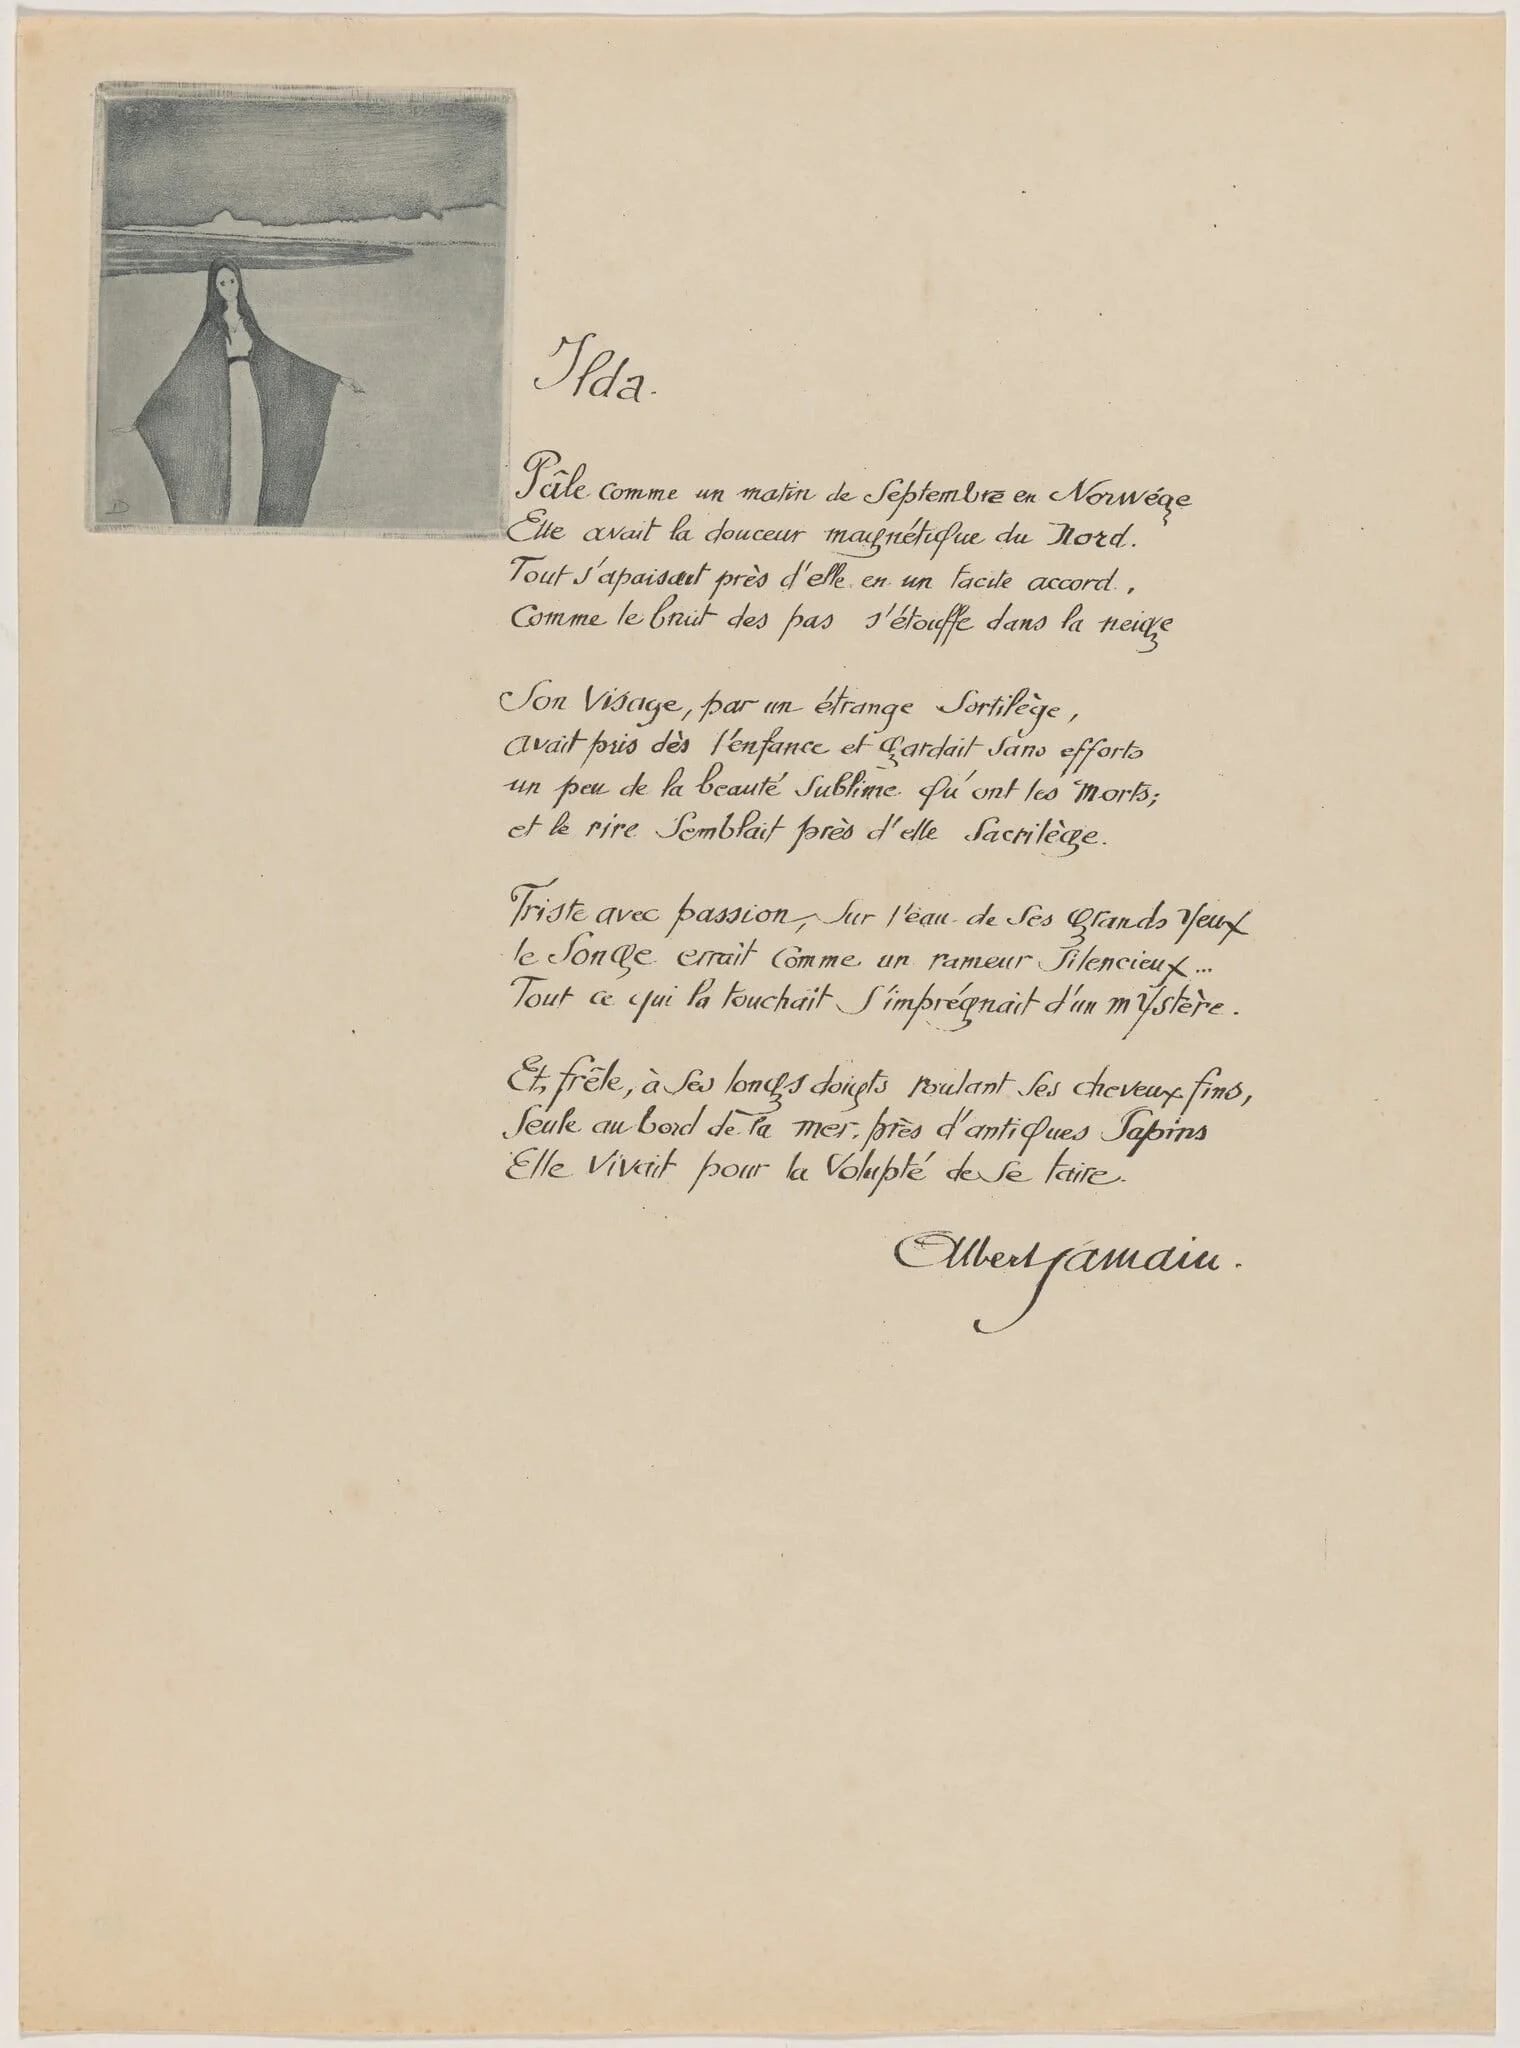 Ilda.
Pâle comme un matin de Septembre en Norwége
Elle avait la douceur magnétique du Nord.
Tout s'apaisait près d'elle en un tacite accord,
Comme le bruit des pas s'étouffe dans la neige
Son Visage, par un étrange Sortilège,
avait pris dès l'enfance et gardait sans efforts
un peu de la beauté sublime qu'ont les Morts;
et le rire Semblait près d'elle Sacrilège.
Triste avec passion, sur l'eau de ses grands Yeux
le Songe errait comme un rameur Silencieux...
Tout ce qui la touchait s'imprégnait d'un mystère.
Et, frêle, à ses longs doigts roulant ses cheveux fins,
Seule au bord de la mer, près d'antiques Sapins
Elle Vivait pour la Volupté de se taire.
Albert Samain.
D